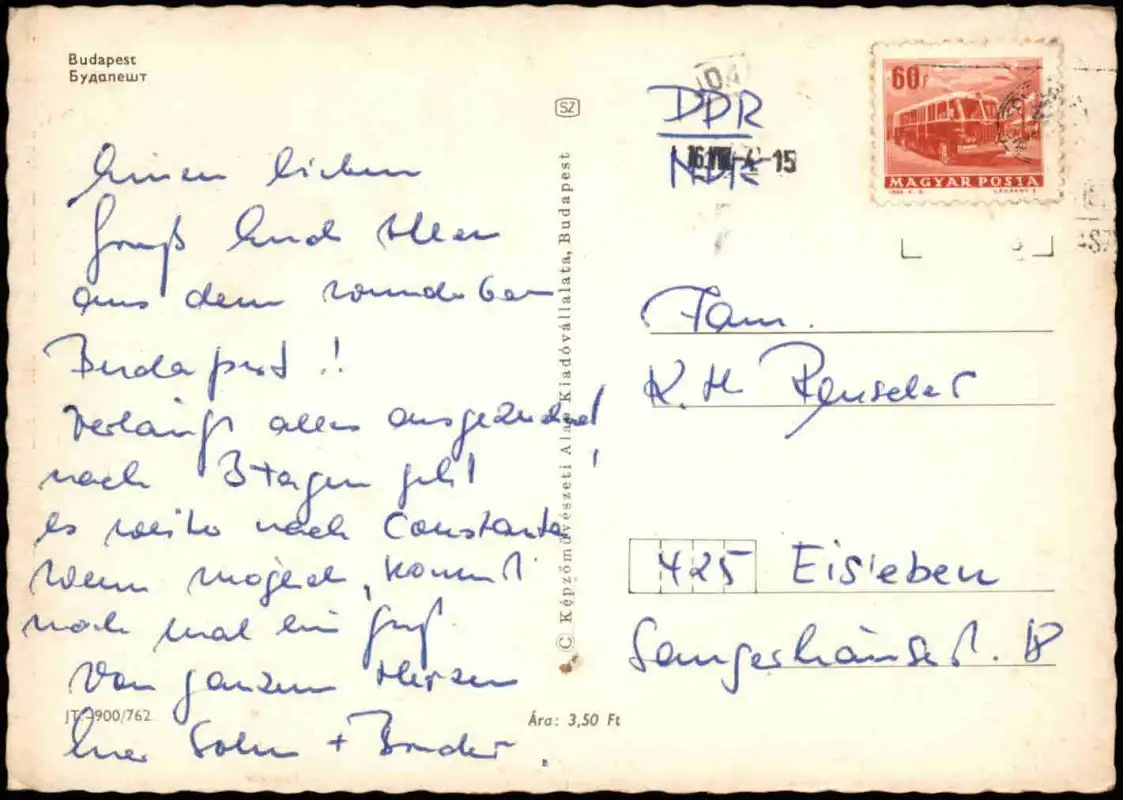 Budapest
Будапешт
Einen lieben
Gruß Euch Allen
aus dem wunderbaren
Budapest!!
Verläuft alles ausgezeichnet!
nach 3 Tagen geht
es weiter nach Constanta
wenn möglich, kommt
noch mal ein Gruß.
Von ganzem Herzen
Euer Sohn + Bruder.
JT-900/762
Ára: 3,50 Ft
SZ
© Képzőművészeti Alap Kiadóvállalata, Budapest
DDR
NDK
16.VIII.-4-15
60f
MAGYAR POSTA
Fam.
K. H.
425 Eisleben
Sangerhäuserst. 18